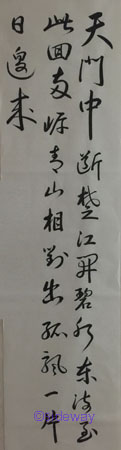 天門中斷楚江開碧水東流至
此回兩岸青山相對出孤帆一片
日邊來